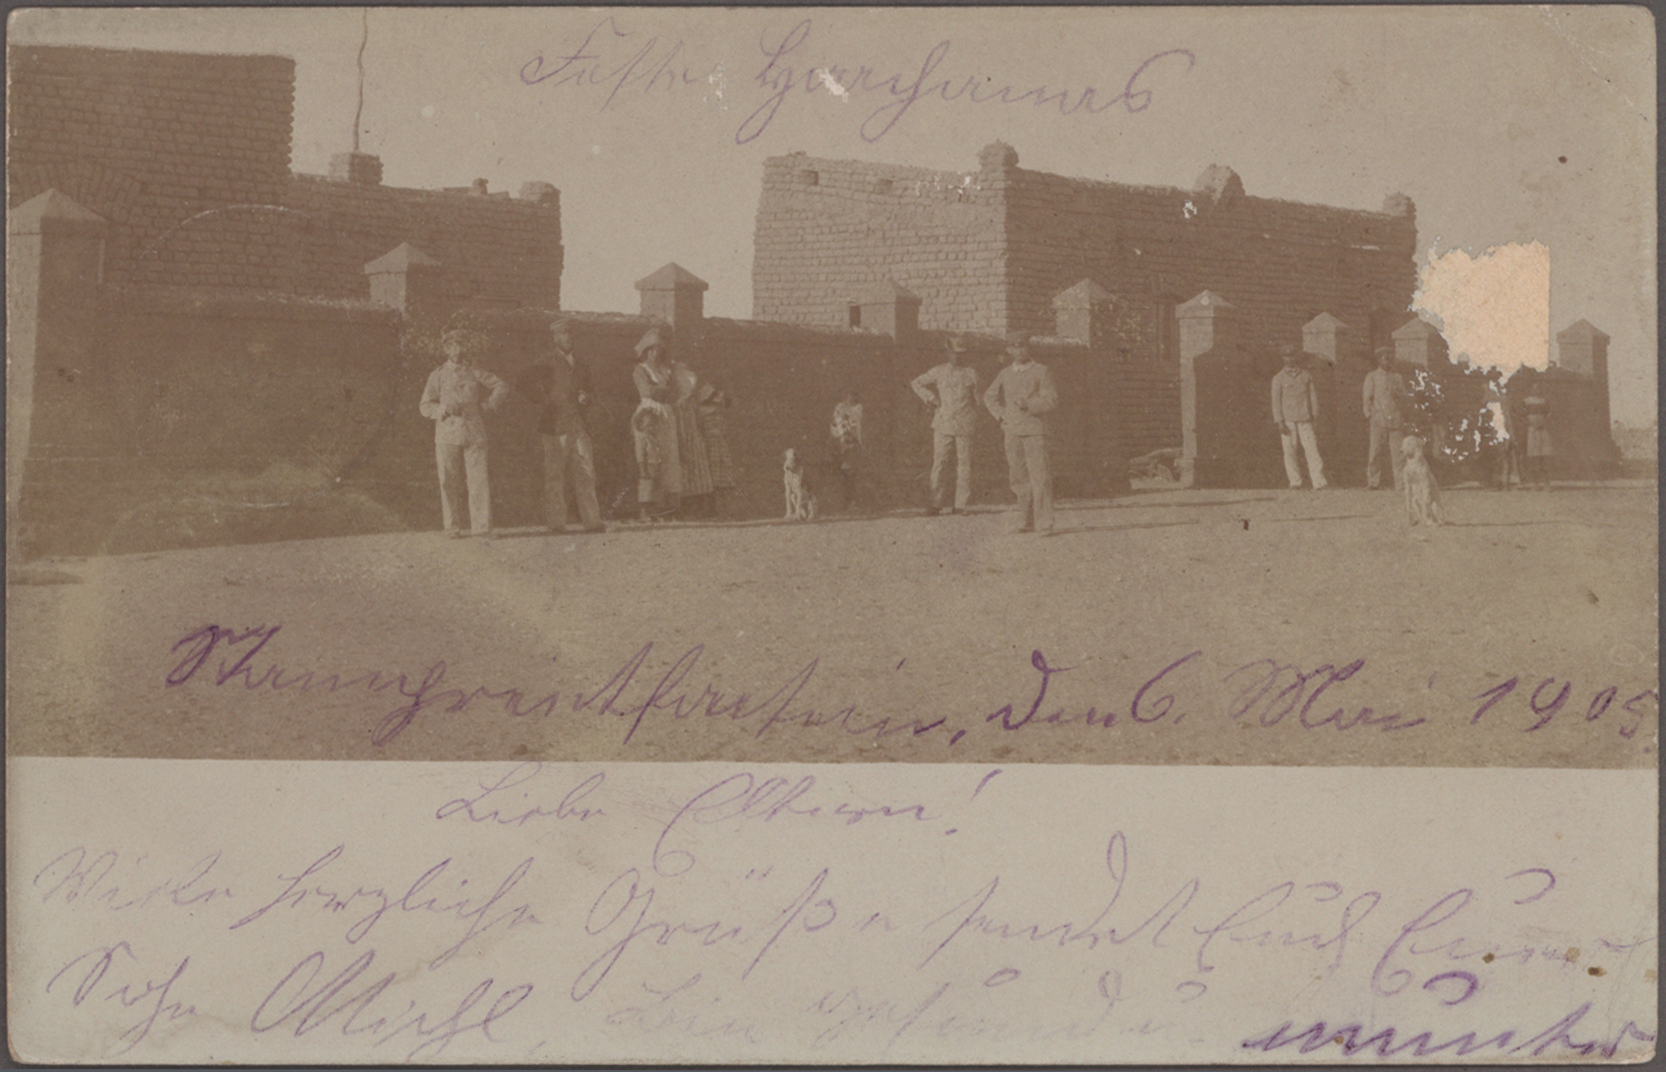 Feste Hoachanas
Stamprietfontein, den 6. Mai 1905
Liebe Eltern!
Viele herzliche Grüße sendet Euch Euer
Sohn Michl, bin gesund u. munter